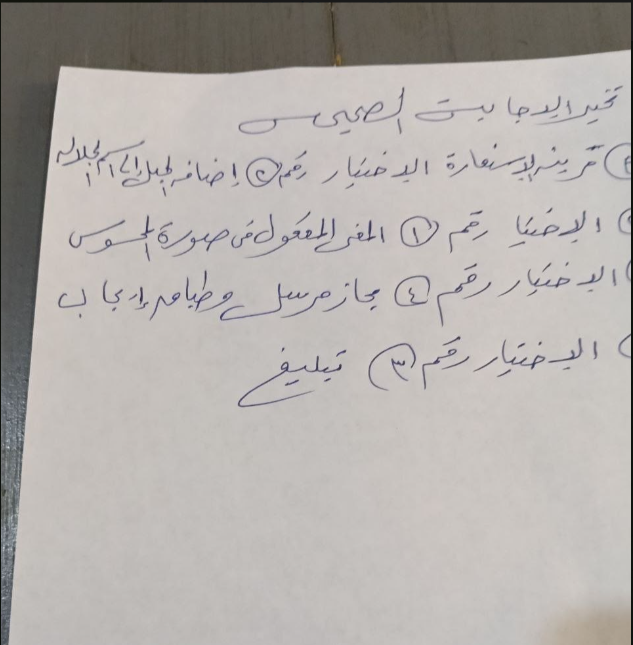 تخير الاجابت الصحيحى
قرينه الاستعارة الاختيار رقم ② إضافه الحبل إلى اسم الجلاله
الاختيا رقم ① المعنى المعقول فى صورة المحسوس
الاختيار رقم ④ مجاز مرسل وطباق إيجاب
الاختيار رقم ③ تبليغ